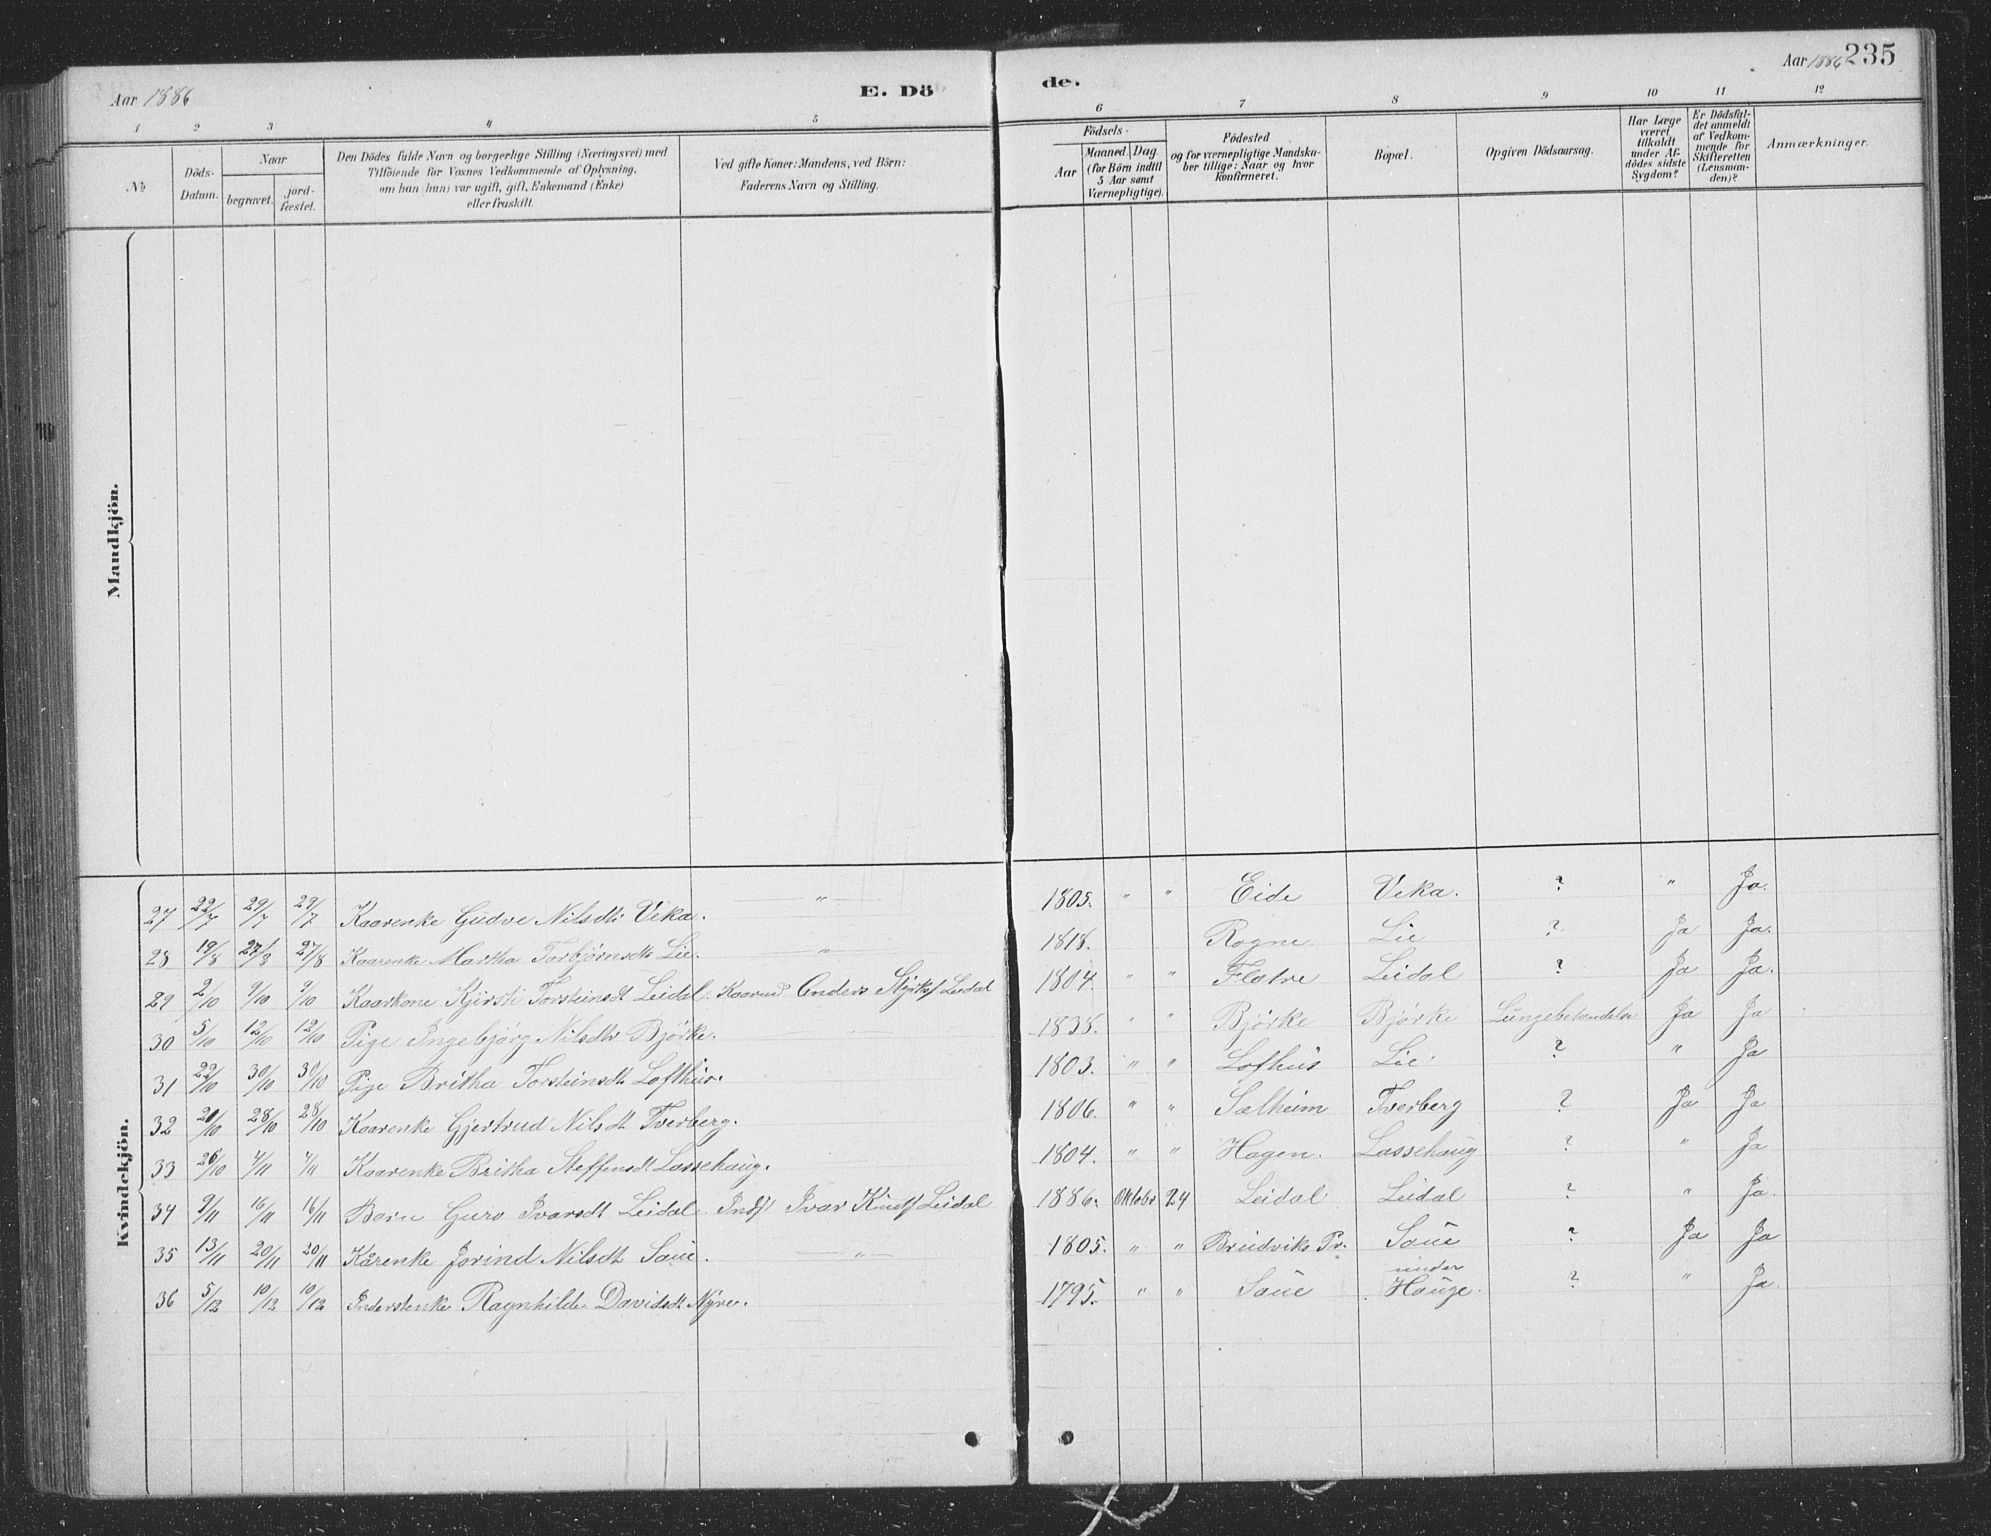 Aar 1886
E. Dö
de.
Aar 1886 235
1 2 3 4 5 6 7 8 9 10 11 12
No
Döds-
Datum.
Naar
begravet.
jord-
fæstet.
Den Dödes fulde Navn og borgerlige Stilling (Næringsvei) med
Tilföiende for Voxnes Vedkommende af Oplysning,
om han (hun) var ugift, gift, Enkemand (Enke)
eller fraskilt.
Ved gifte Koner: Mandens, ved Börn:
Faderens Navn og Stilling.
Födsels-
Aar
Maaned. Dag
(for Börn indtil
5 Aar samt
Værnepligtige).
Födested
og for værnepligtige Mandska-
ber tillige: Naar og hvor
konfirmeret.
Bopæl.
Opgiven Dödsaarsag.
Har Læge
været
tilkaldt
under Af-
dödes sidste
Sygdom?
Er Dödsfal-
det anmeldt
af Vedkom-
mende for
Skifteretten
(Lensman-
den)?
Anmærkninger.
Mandkjön.
Kvindekjön.
27 22/7 29/7 29/7 Kaarenke Gudve Nilsdtr Veka. " 1805. " " Eide Veka. ? " Ja.
28 19/8 27/8 27/8 Kaarenke Martha Torbjørnsdtr Lie. " 1818. Rogne Lie ? Ja Ja.
29 2/10 9/10 9/10 Kaarkone Kjirsti Torsteinsdt Leidal. Kaarmd. Anders Styrks. Leidal 1804 " " Flatre Leidal ? Ja Ja.
30 5/10 12/10 12/10 Pige Ingebjörg Nilsdtr Björke. 1838. " " Björke Björke Lungebetændelse Ja Ja
31 22/10 30/10 30/10 Pige Britha Torsteinsdt Lofthus. 1803. " " Lofhus Lie. ? " Ja
32 21/10 28/10 28/10 Kaarenke Gjertrud Nilsdt Tverberg. 1806. " " Sælheim Tverberg ? Ja Ja
33 26/10 4/11 4/11 Kaarenke Britha Steffensdt Lassehaug. 1804. " " Hagen. Lassehaug ? " Ja
34 9/11 16/11 16/11 Barn Guro Ivarsdt Leidal. Indst Ivar Knuts Leidal 1886. Oktobr 24 Leidal Leidal ? " Ja.
35 13/11 20/11 20/11 Kårenke Jorind Nilsdt Saue. " 1805. " " Brudviks Pr. Saue ? Ja Ja
36 5/12 10/12 10/12 Inderstenke Ragnhilde Davidsdt Nyre. 1795. " " Saue under Hauge. ? " Ja.